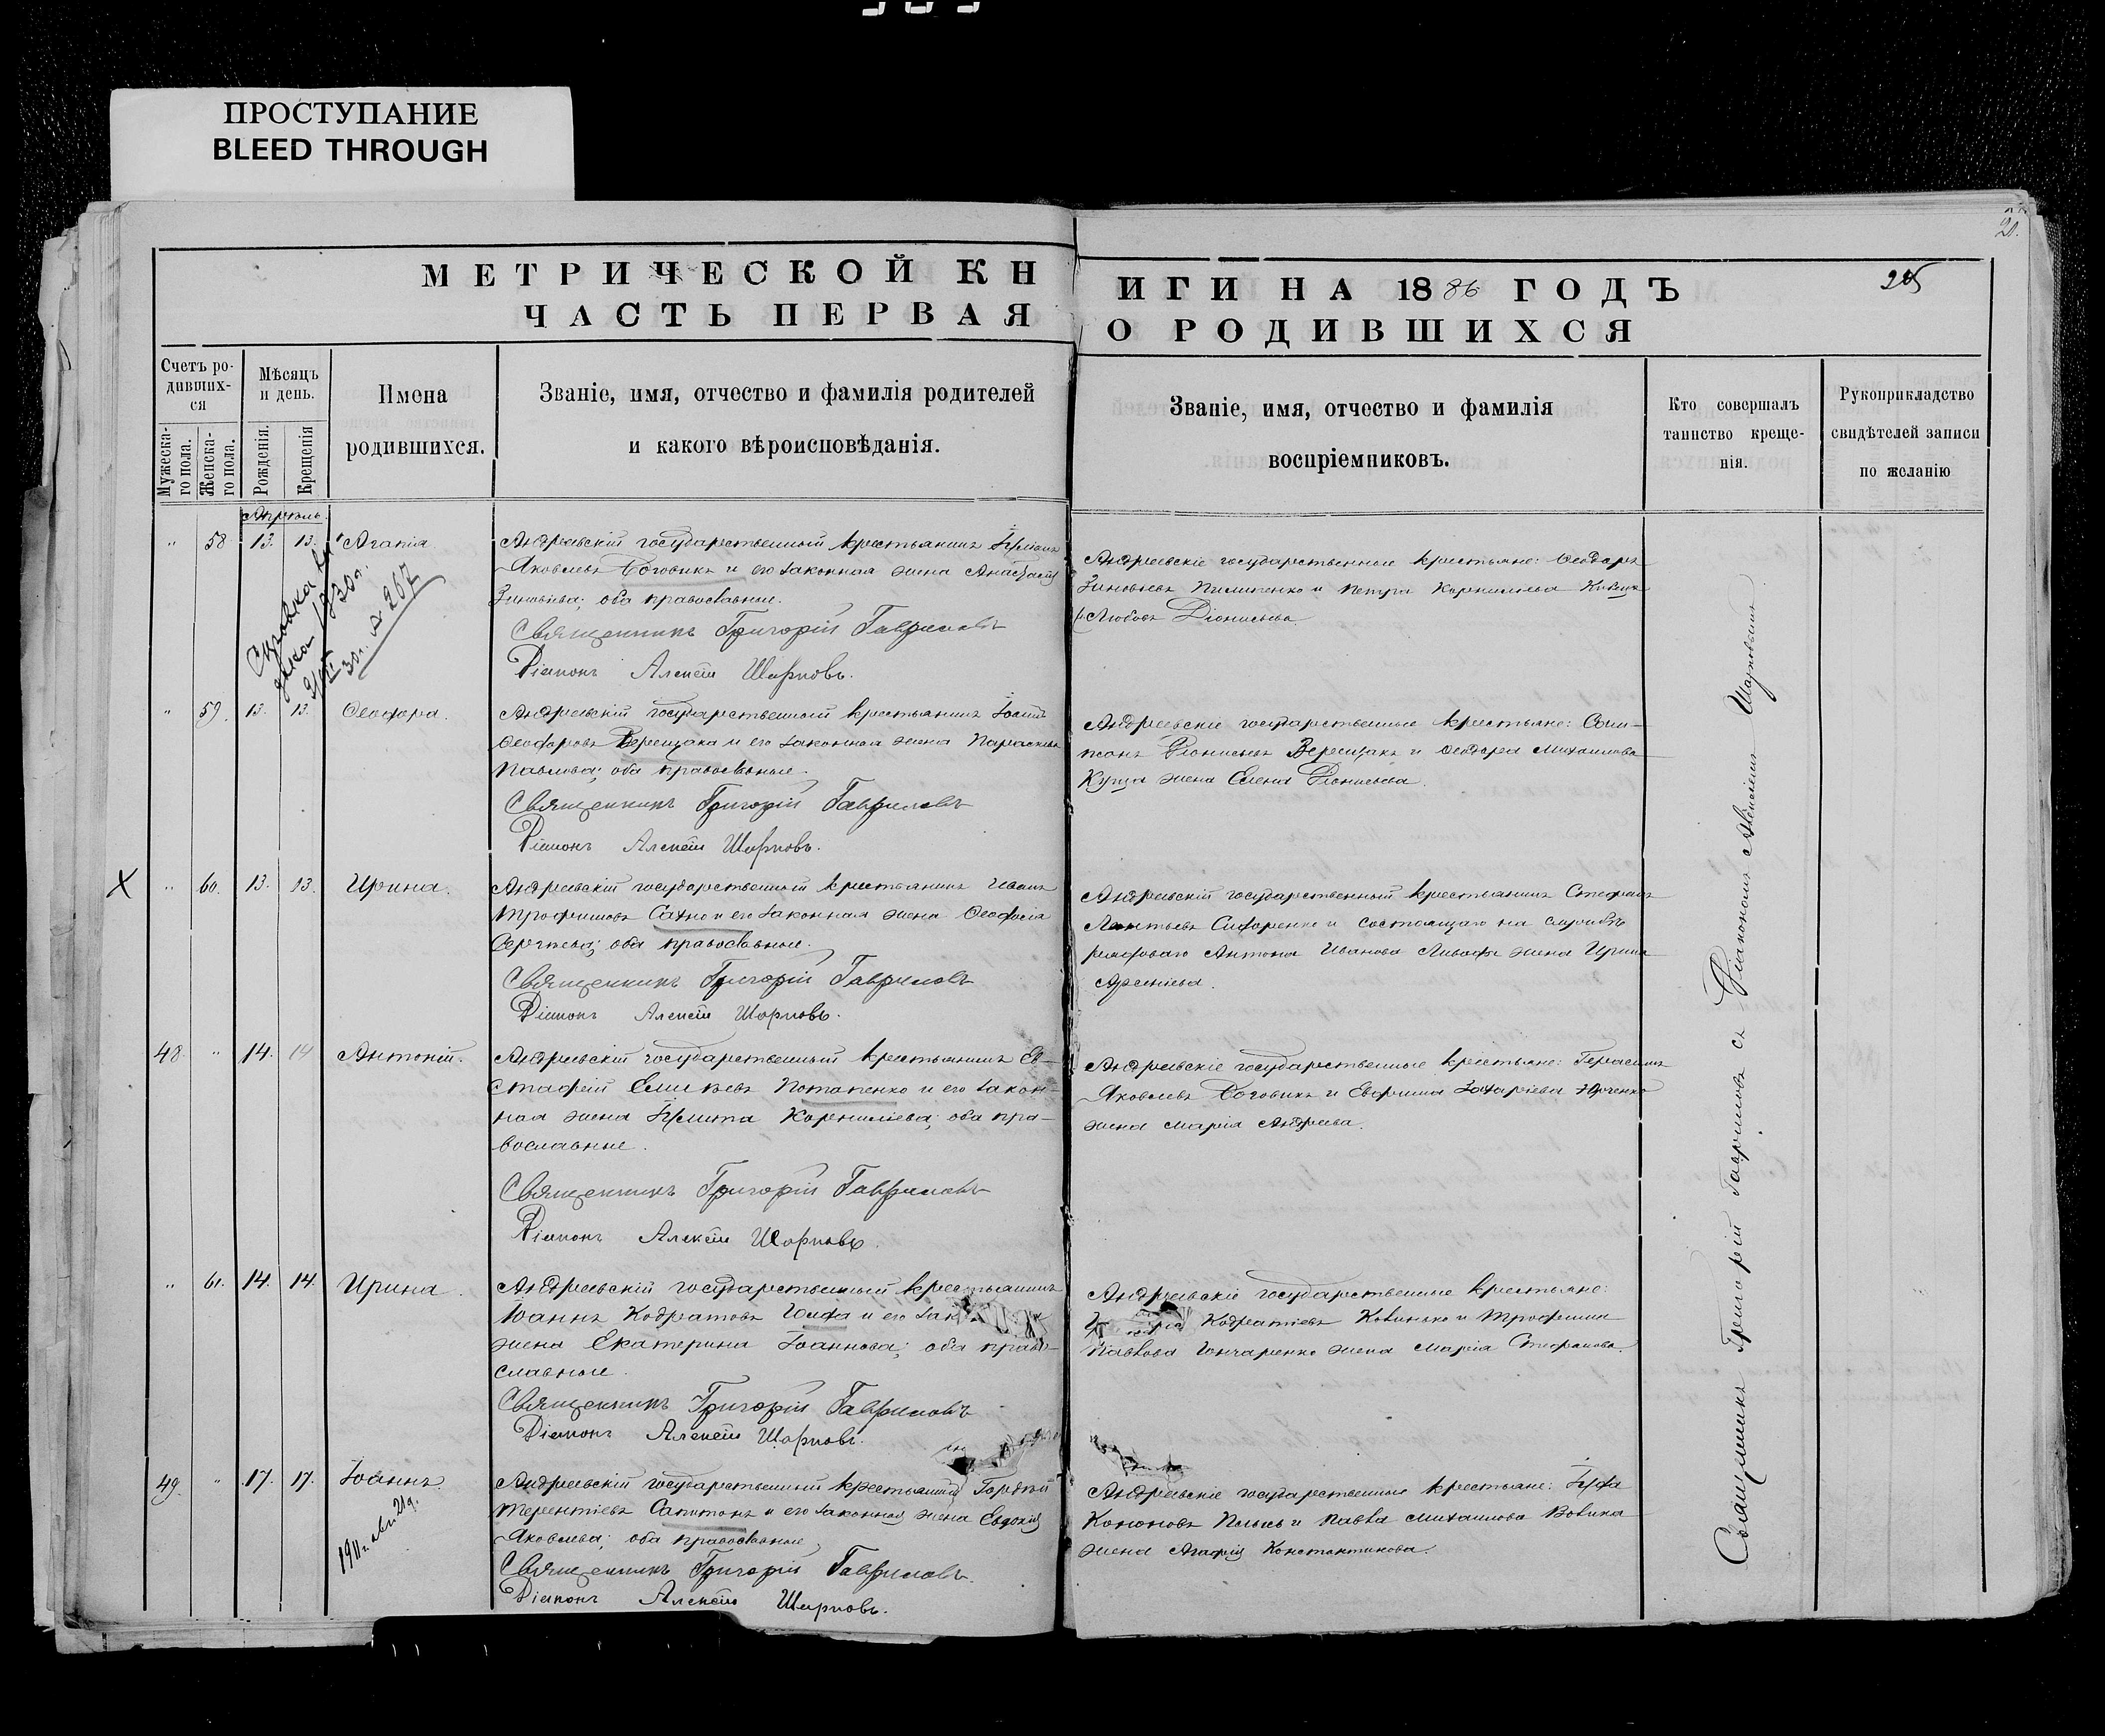 ПРОСТУПАНИЕ
BLEED THROUGH
МЕТРИЧЕСКОЙ КН
ЧАСТЬ ПЕРВАЯ
ИГИ НА 1886 ГОДЪ
О РОДИВШИХСЯ
Счетъ ро-
дивших-
ся
Мужеска-
го пола.
Женска-
го пола.
Мѣсяцъ
и день.
Рожденія.
Крещенія
Имена
родившихся.
Званіе, имя, отчество и фамилія родителей
и какого вѣроисповѣданія.
Званіе, имя, отчество и фамилія
воспріемниковъ.
Кто совершалъ
таинство креще-
нія.
Рукоприкладство
свидѣтелей записи
по желанію
Апрѣль
" 58 13. 13. Агапія
Андреевскій государственный крестьянинъ
Яковлевъ Боговикъ и его законная жена Анастасія
Зиновіева; оба православные.
Священникъ Григорій Гавриловъ
Діаконъ Алексѣй Шарковъ.
Андреевскіе государственные крестьяне: Ѳеодоръ
Зиновіевъ Пилипенко и Петра Корниліева
Любовь Діонисіева
Справка
№ 267
" 59. 13. 13. Ѳеодора.
Андреевскій государственный крестьянинъ
Ѳеодоровъ Верещака и его законная жена Параскева
Павлова; оба православные.
Священникъ Григорій Гавриловъ
Діаконъ Алексѣй Шарковъ.
Андреевскіе государственные крестьяне:
Діонисіевъ Верещака и Ѳеодора Михаилова
Куща жена Елена Діонисіева.
X " 60. 13. 13. Ирина.
Андреевскій государственный крестьянинъ Иванъ
Трофимовъ Сахно и его законная жена Ѳеодосія
Сергіева; оба православные.
Священникъ Григорій Гавриловъ
Діаконъ Алексѣй Шарковъ.
Андреевскій государственный крестьянинъ Стефанъ
Леонтьевъ Сидоренко и состоящаго на службѣ
рядоваго Антона Иванова жена Ирина
Арсеніева.
48. " 14. 14 Антоній.
Андреевскій государственный крестьянинъ Ев-
стафій Емиліевъ Потапенко и его закон-
ная жена Корниліева; оба пра-
вославные.
Священникъ Григорій Гавриловъ
Діаконъ Алексѣй Шарковъ.
Андреевскіе государственные крестьяне: Герасимъ
Яковлевъ Боговикъ и Евфима Захаріева Юрченко
жена Марія Андреева.
" 61. 14. 14. Ирина.
Андреевскій государственный крестьянинъ
Іоаннъ Кодратовъ и его
жена Екатерина Іоаннова; оба право-
славные.
Священникъ Григорій Гавриловъ
Діаконъ Алексѣй Шарковъ.
Андреевскіе государственные крестьяне:
Кодратіевъ Ковинько и Трофима
Павлова Гончаренко жена Марія Стефанова.
49. " 17. 17. Іоаннъ.
Андреевскій государственный крестьянинъ Гордѣй
Терентіевъ Сапитонъ и его законная жена Евдокія
Яковлева; оба православные
Священникъ Григорій Гавриловъ.
Діаконъ Алексѣй Шарковъ.
Андреевскіе государственные крестьяне:
Кононовъ и Павла Михаилова Вовика
жена Агафія Константинова.
Священникъ Григорій Гавриловъ съ Діакономъ Алексіемъ Шарковымъ